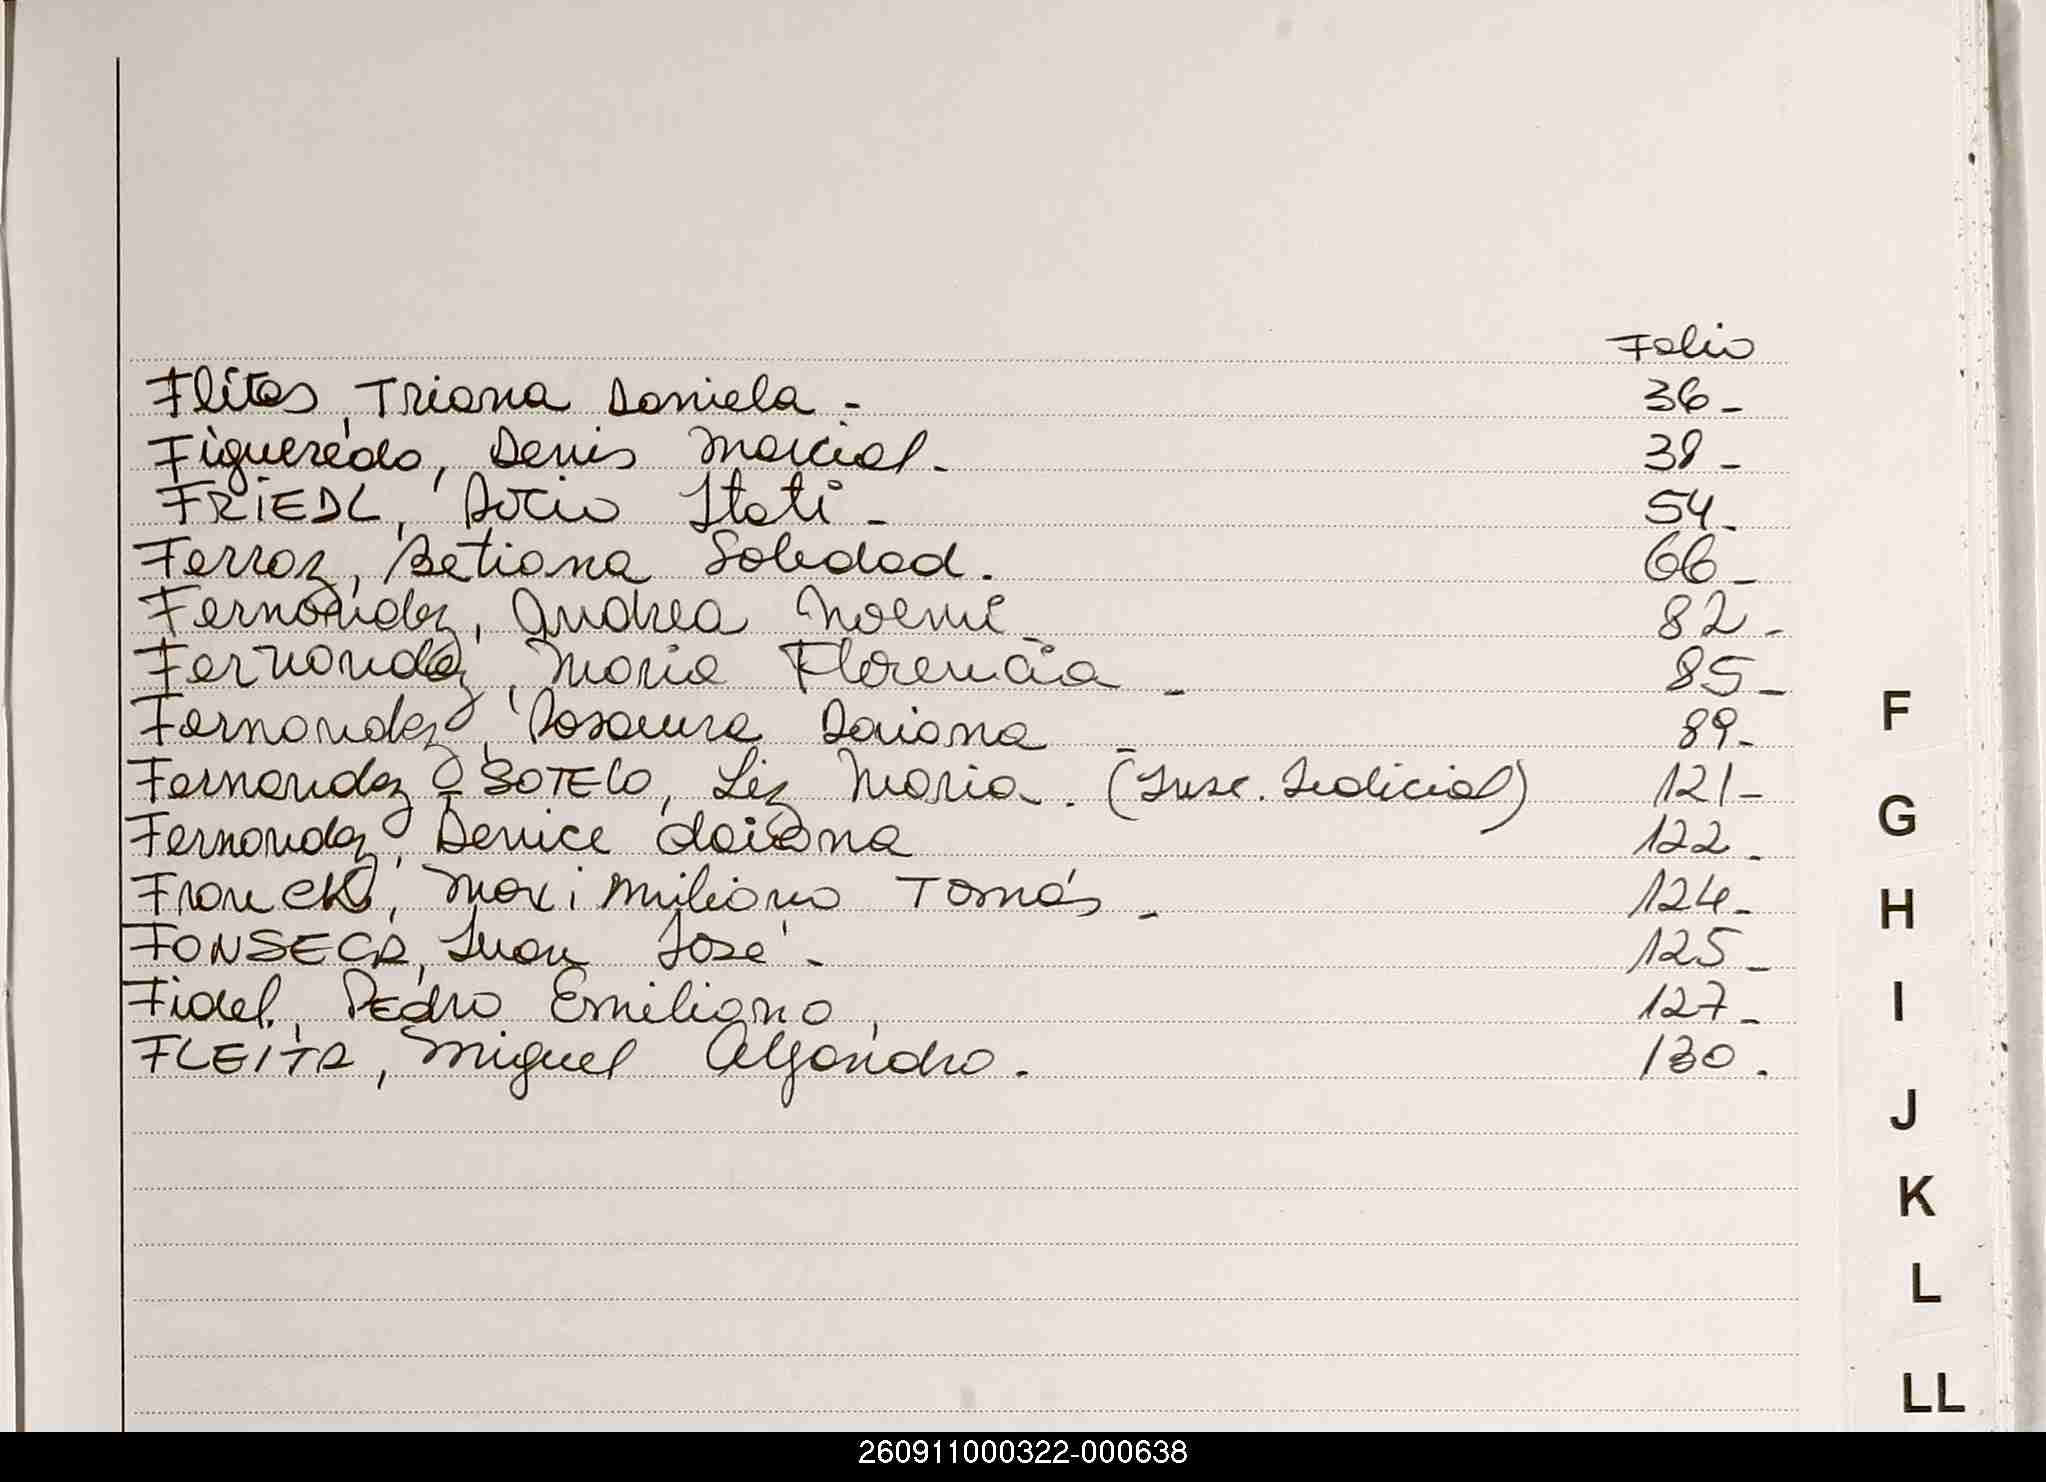 Folio
Flitas, Triana Daniela - 36-
Figueredo, Denis Marcial. 38-
FRIEDL, Rocio Itati - 54-
Ferraz, Betiana Soledad. 66-
Fernández, Andrea Noemi - 82-
Fernandez, Maria Florencia - 85-
Fernandez, Rosaura Daiana - 89-
Fernandez SOTELO, Liz Maria. (Insc. Judicial) 121-
Fernandez, Denice daiana 122-
Franck, Maximiliano Tomás - 124-
FONSECA, Juan José - 125-
Fidel, Pedro Emiliano, 127-
FLEITA, Miguel Alejandro. 130.
F
G
H
I
J
K
L
LL
260911000322-000638